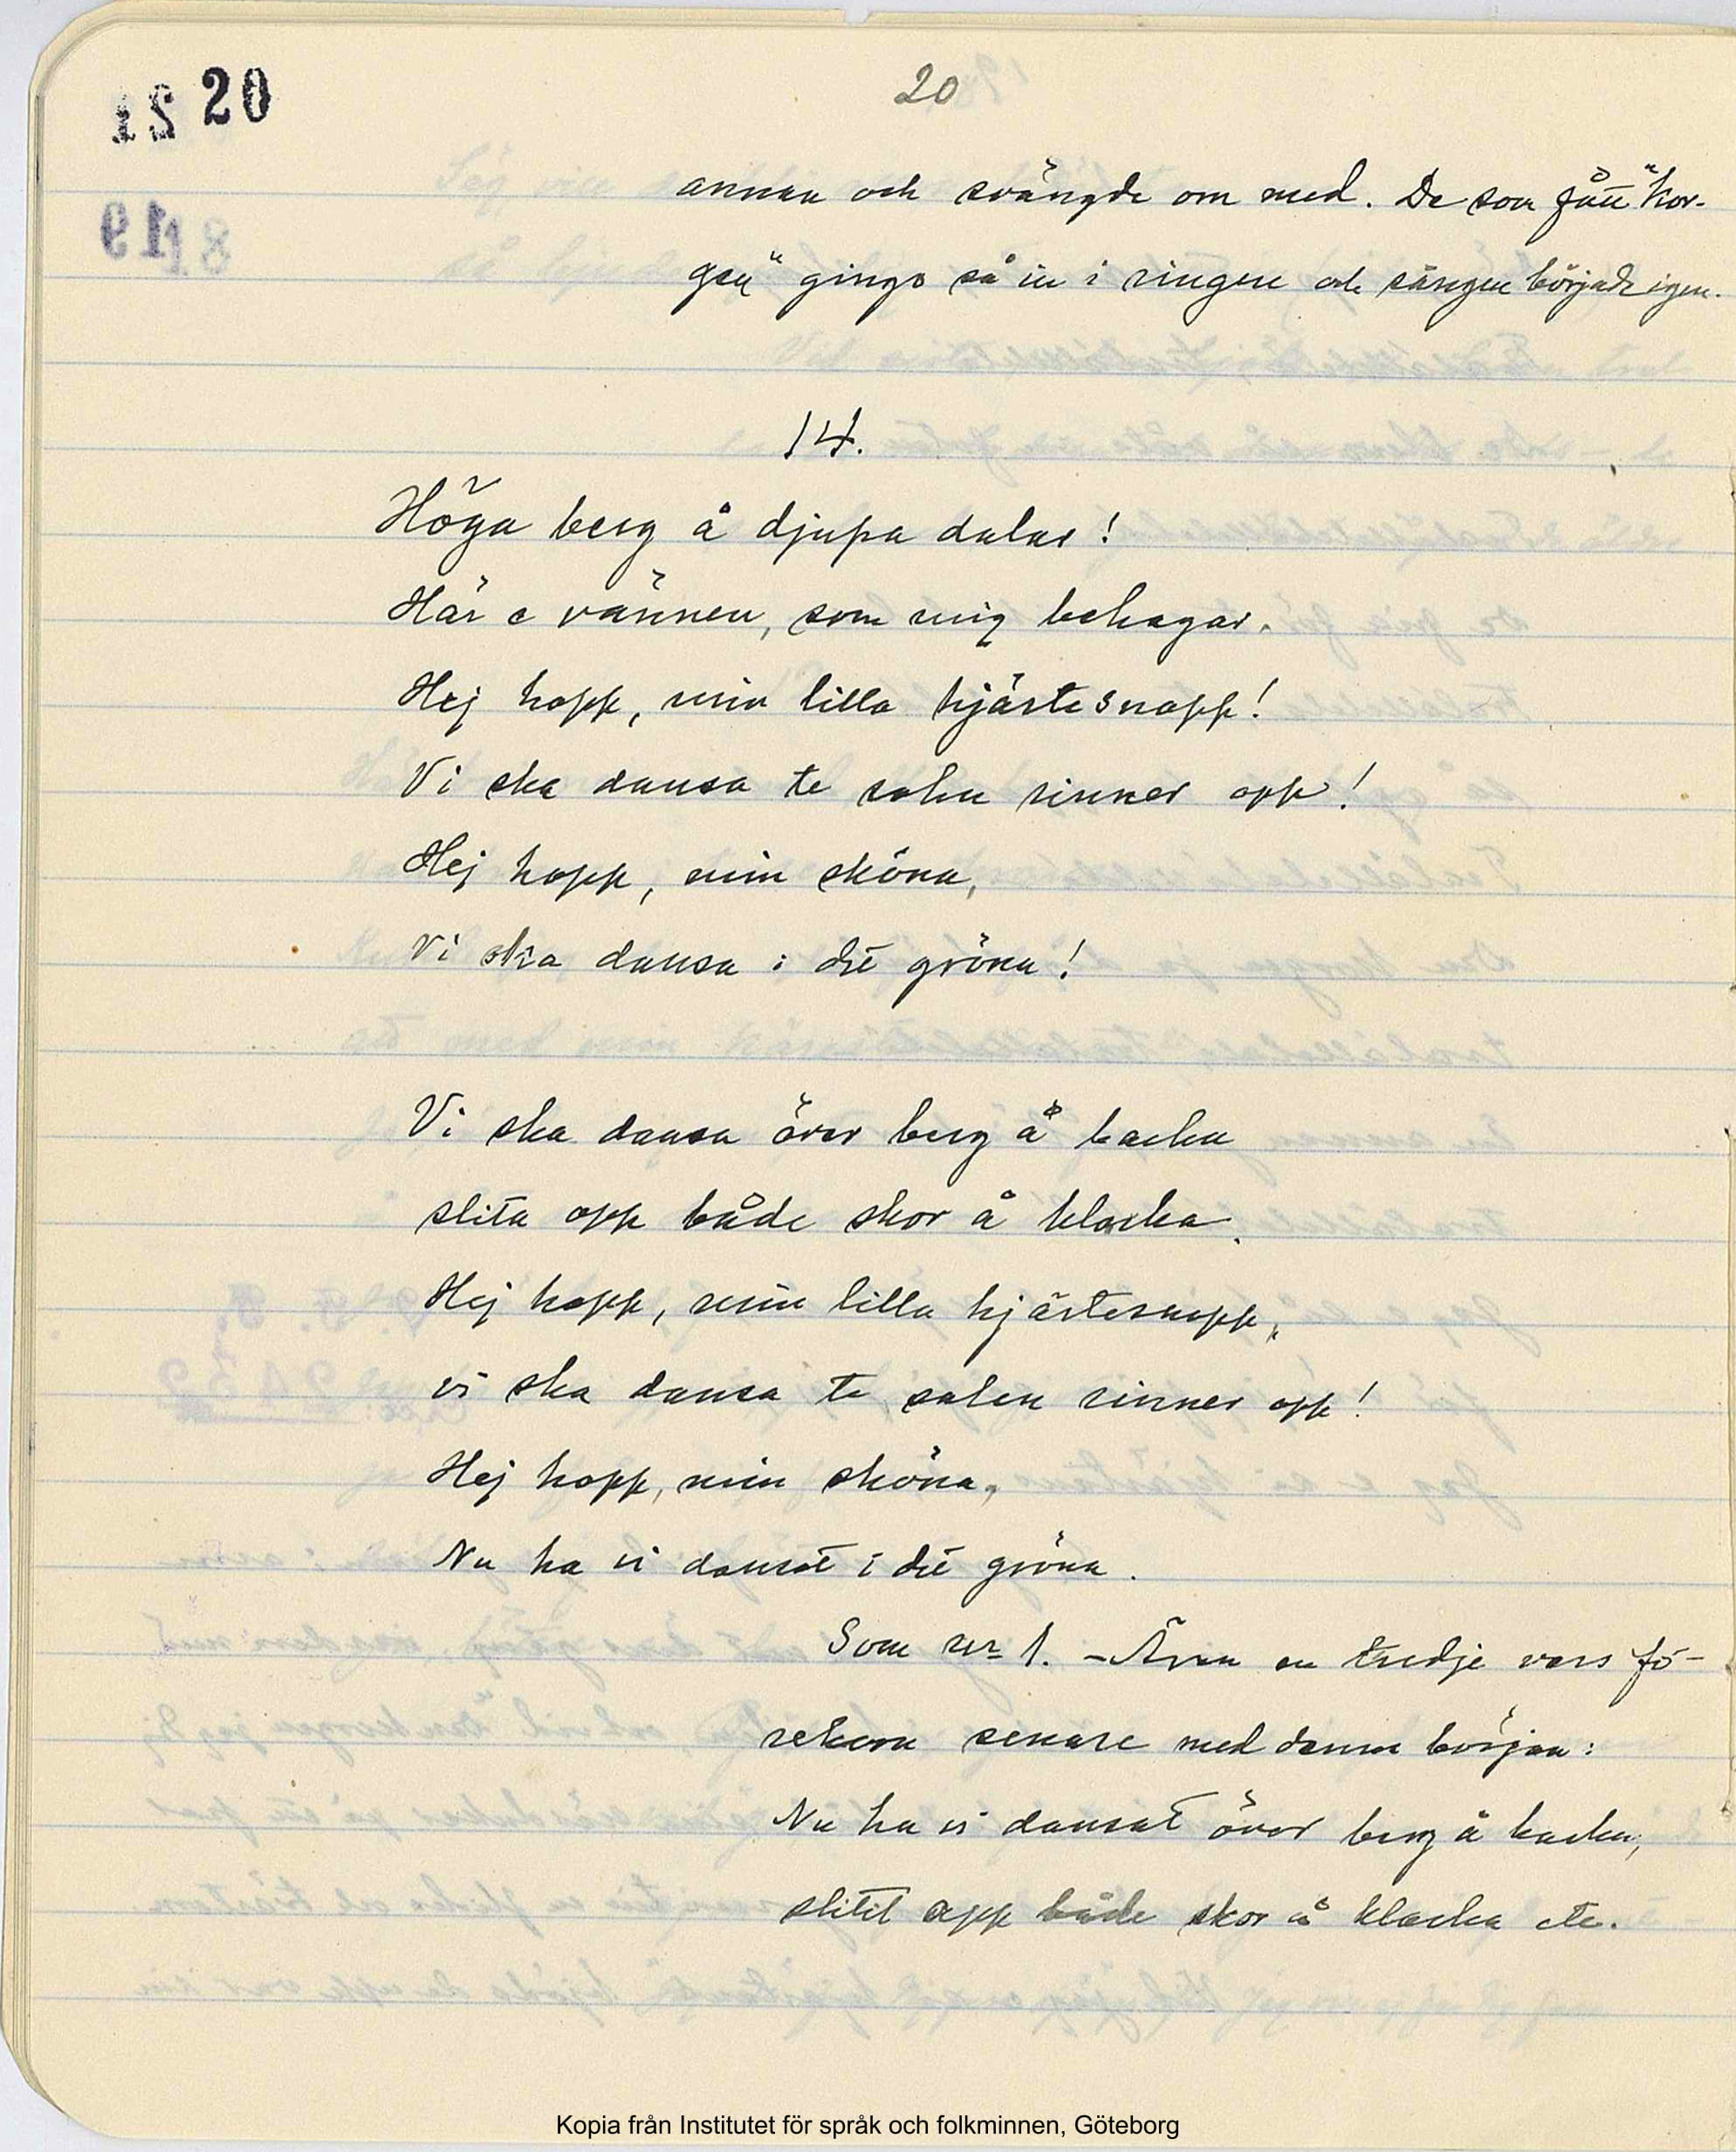 20
20
annan och svängde om med. De som fått "kor-
gen" gingo så in i ringen och sången började igen.
14.
Höga berg å djupa dalar!
Här e vännen, som mig behagar.
Hej hopp, min lilla hjärtesnopp!
Vi ska dansa te solen rinner opp!
Hej hopp, min sköna,
Vi ska dansa i det gröna!
Vi ska dansa över berg å backa
slita opp både skor å klacka.
Hej hopp, min lilla hjärtesnopp,
vi ska dansa te solen rinner opp!
Hej hopp, min sköna,
Nu ha vi dansat i det gröna.
Som nr 1. - Även en tredje vers fö-
rekom senare med denna början:
Nu ha vi dansat över berg å backa,
slitit opp både skor å klacka etc.
Kopia från Institutet för språk och folkminnen, Göteborg